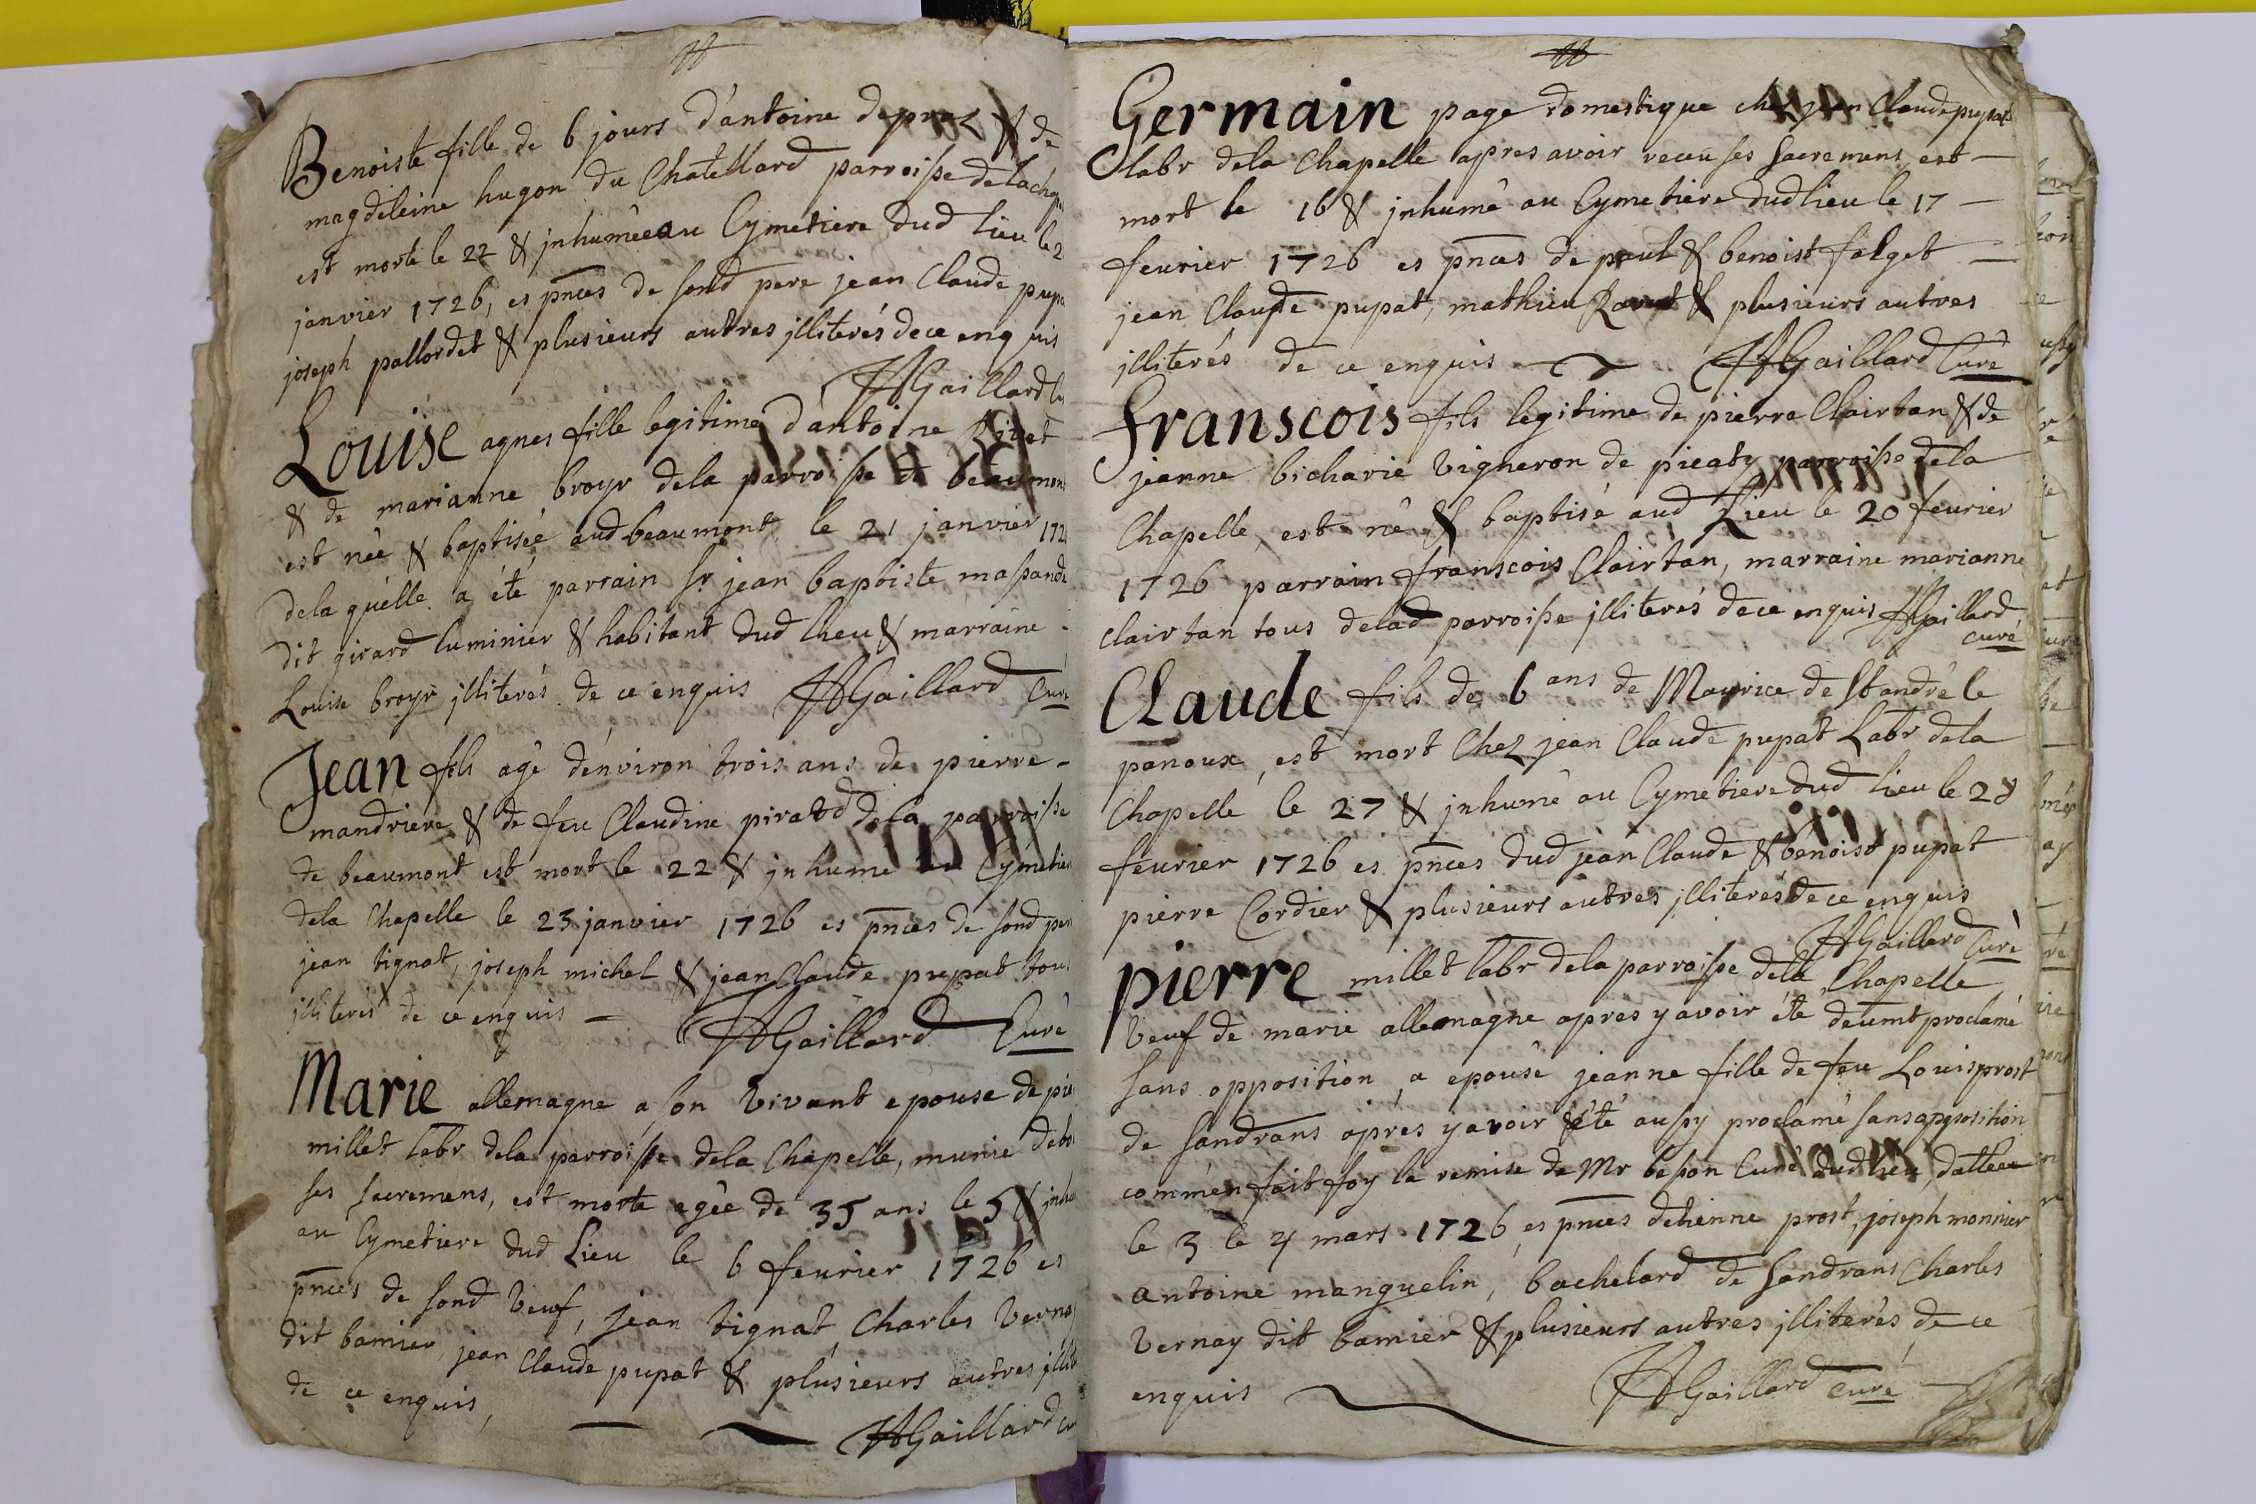 Benoiste fille de 6 jours d'antoine depraz & de
magdeleine hugon du Chatellard parroisse de la chap
est morte le 22 & jnhumée au Cymetiere dud lieu le 2
janvier 1726, es pnces de sond pere jean Claude pupa
joseph pallordet & plusieurs autres jlliterés de ce enquis
Gaillard Cu
Louise agnes fille legitime d'antoine Rivet
& de marianne broyr de la parroisse de beaumon
est née & baptisée aud beaumont le 21 janvier 172
de la quelle a été parrain sr jean baptiste massand
dit girard luminier & habitant dud lieu & marraine
Louise broyr jlliterés de ce enquis Gaillard Curé
Jean fils agé d'environ trois ans de pierre
mandriere & de feu Claudine pirat de la parroisse
de beaumont est mort le 22 & jnhumé au Cymetier
de la Chapelle le 23 janvier 1726 es pnces de sond per
jean tignat, joseph michel & jean Claude pupat tous
jlliterés de ce enquis Gaillard Curé
Marie allemagne, a son vivant epouse de pie
millet labr de la parroisse de la Chapelle, munie de to
ses sacremens, est morte agée de 35 ans le 5 & jnhu
au Cymetiere dud Lieu le 6 feurier 1726 es
pnces de sond veuf, jean tignat, Charles verna
dit bamier, jean Claude pupat & plusieurs autres jllite
de ce enquis,
Gaillard cu
Germain page domestique chez jean Claude pupat
labr de la Chapelle apres avoir receu ses sacremens est
mort le 16 & jnhumé au Cymetiere dud lieu le 17
feurier 1726 es pnces de paul & benoist falget
jean Claude pupat, mathieu Ravet & plusieurs autres
jlliterés de ce enquis Gaillard Curé
franscois fils legitime de pierre Clairtan & de
jeanne bicharie vigneron de picaty parroisse de la
Chapelle, est né & baptisé aud Lieu le 20 feurier
1726 parrain franscois Clairtan, marraine marianne
clairtan tous de lad parroisse jlliterés de ce enquis Gaillard
curé
Claude fils de 6 ans de Maurice de St andré le
panoux, est mort Chez jean Claude pupat Labr de la
Chapelle le 27 & jnhumé au Cymetiere dud lieu le 28
feurier 1726 es pnces dud jean Claude & benoist pupat
pierre Cordier & plusieurs autres jlliterés de ce enquis
Gaillard Curé
pierre millet labr de la parroisse de la Chapelle
veuf de marie allemagne apres y avoir été deumt proclamé
sans opposition, a epousé jeanne fille de feu Louis prost
de sandrans apres y avoir été aussy proclamé sans opposition
comm'en fait foy la remise de Mr besson Curé dud lieu, dattée
le 3 le 4 mars 1726, es pnces detienne prost, joseph monnier
antoine manguelin, bachelard de sandrans, Charles
vernay dit bamier & plusieurs autres jlliterés, de ce
enquis Gaillard curé